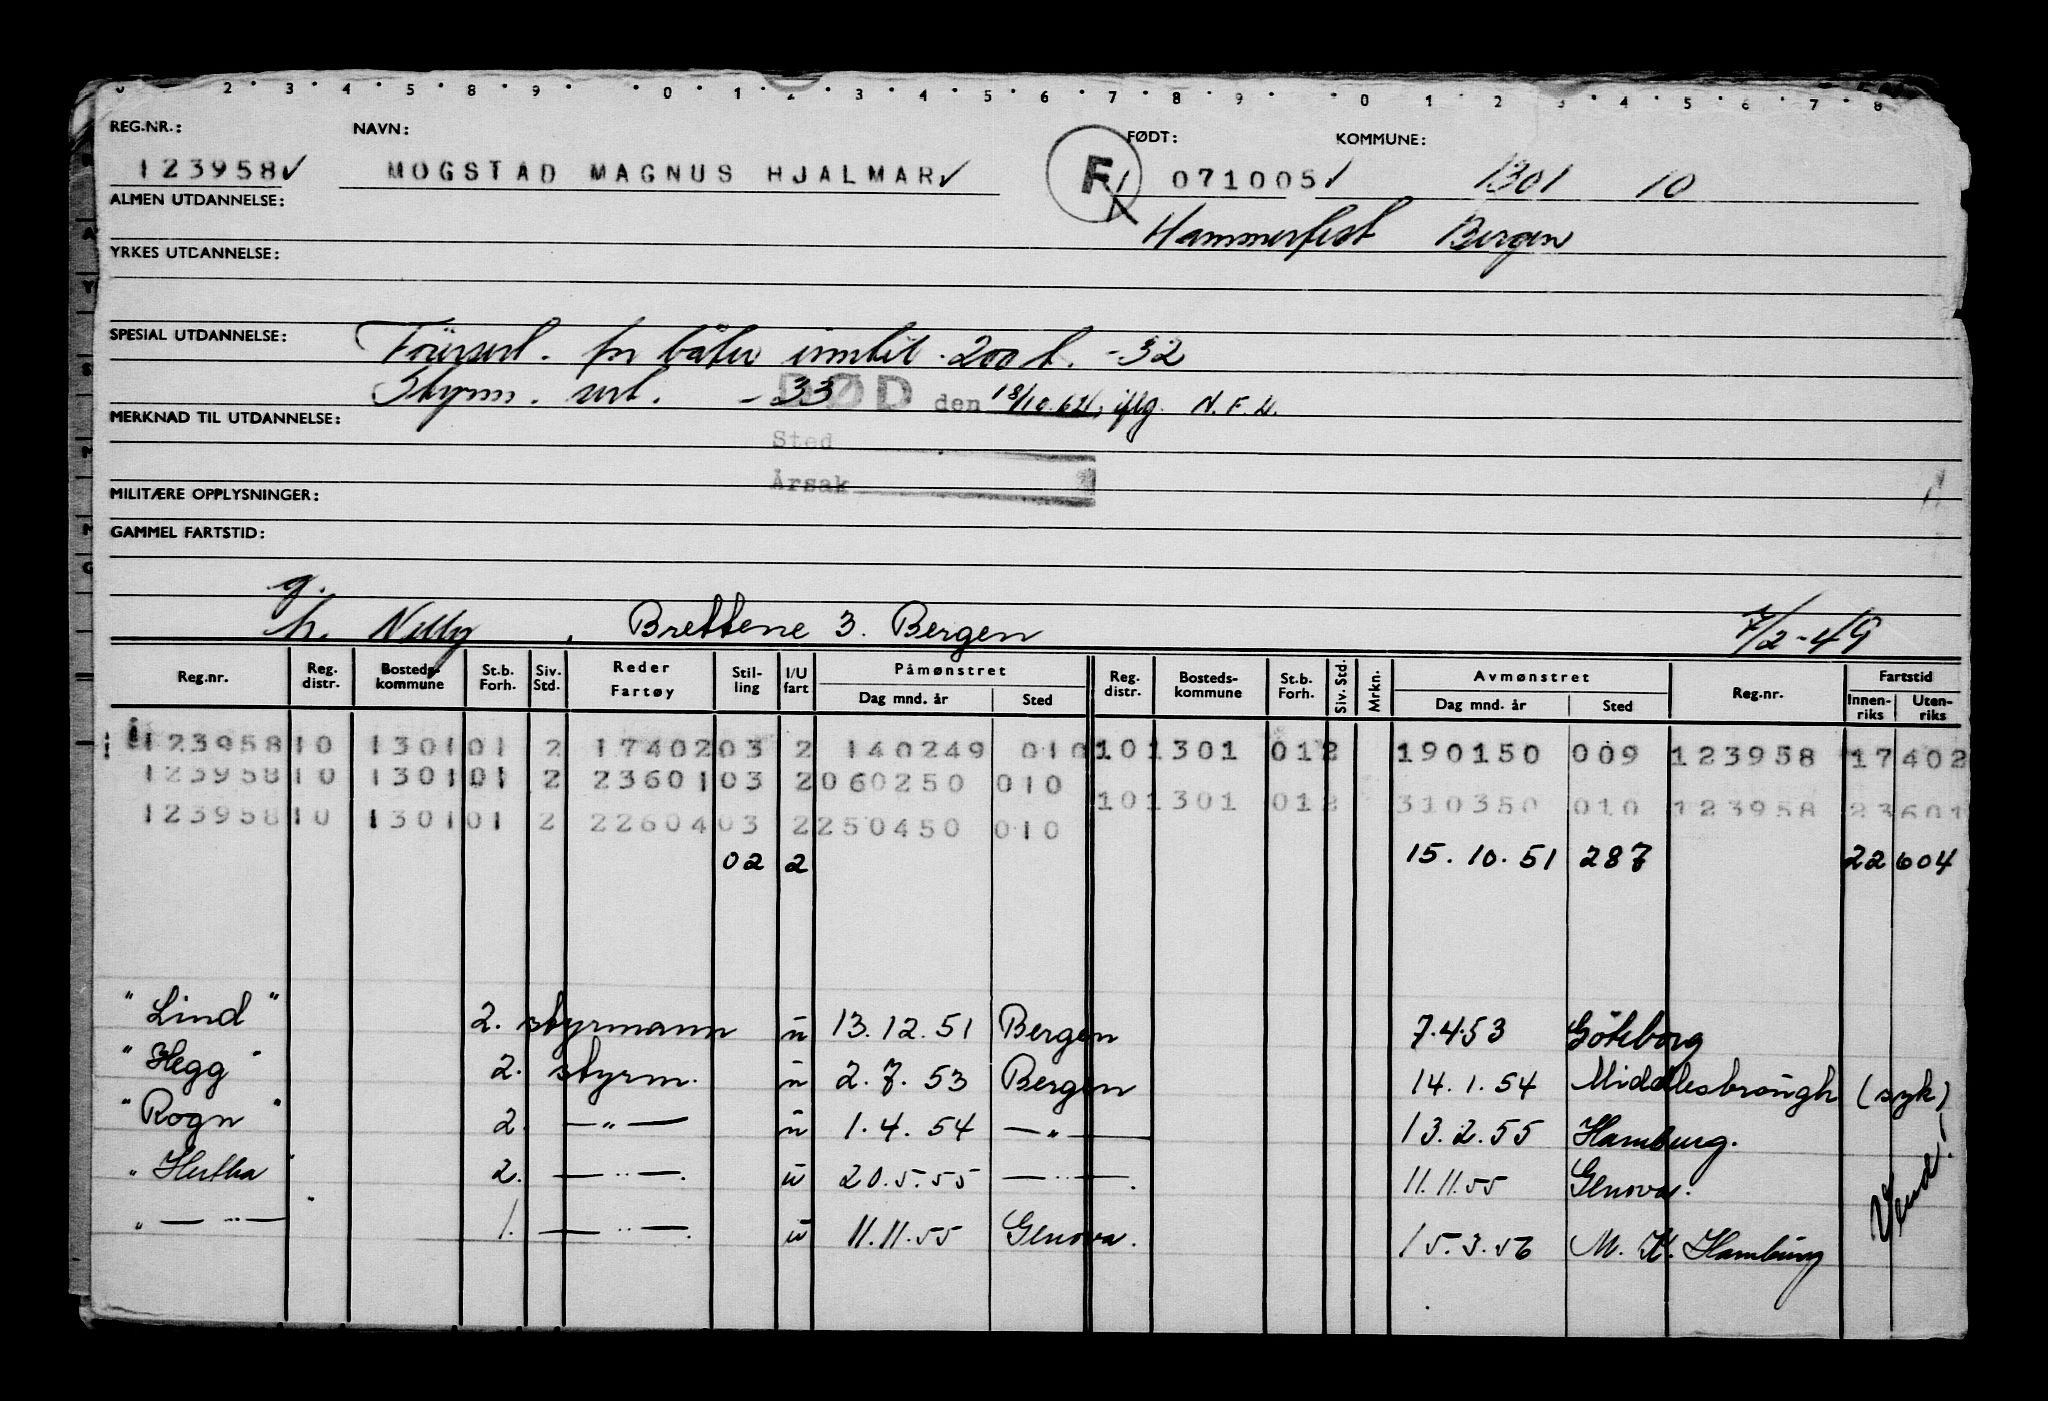 2 3 4 5 8 9 0 1 2 3 4 5 6 7 8 9 0 1 2 3 4 5 6 7 8
REG.NR.: NAVN: FØDT: KOMMUNE:
123958 MOGSTAD MAGNUS HJALMAR F 071005 1301 10
ALMEN UTDANNELSE: Hammerfest Bergen
YRKES UTDANNELSE:
SPESIAL UTDANNELSE: for båter inntil 200 t. -32
Styrm. - 33 DØD den 18/10.62, iflg.
MERKNAD TIL UTDANNELSE:
Sted
Årsak
MILITÆRE OPPLYSNINGER:
GAMMEL FARTSTID:
g.
h. Nelly, Brettene 3. Bergen 7/2-49
Reg.nr. Reg. distr. Bosteds-kommune St.b. Forh. Siv. Std. Reder Fartøy Stil-ling I/U fart Påmønstret Dag mnd. år Sted Reg. distr. Bosteds-kommune St.b. Forh. Siv. Std. Mrkn. Avmønstret Dag mnd. år Sted Reg.nr. Fartstid Innen-riks Uten-riks
123958 10 1301 01 2 17402 03 2 140249 010 10 1301 01 2 190150 009 123958 17402
123958 10 1301 01 2 23601 03 2 060250 010 10 1301 01 2 310350 010 123958 23601
123958 10 1301 01 2 22604 03 2 250450 010
02 2 15.10.51 287 22604
"Lind" 2. styrmann u 13.12.51 Bergen 7.4.53 Göteborg
"Hegg" 2. styrm. u 2.7.53 Bergen 14.1.54 Middlesbrough (syk)
"Rogn" 2. —"— u 1.4.54 —"— 13.2.55 Hamburg.
"Hertha" 2. —"—. u 20.5.55 —"—. 11.11.55 Genova.
"—"— 1. —"—. u 11.11.55 Genova. 15.3.56 M. K. Hamburg
Vend!